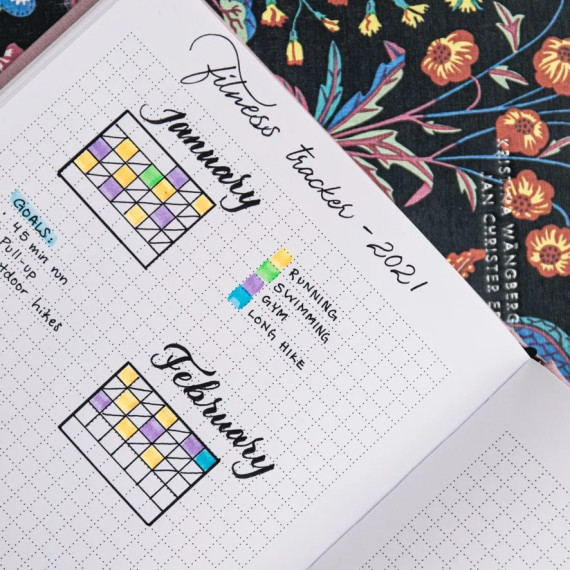 fitness tracker - 2021
January
GOALS:
45 min run
Pull-up
hikes
RUNNING
SWIMMING
GYM
LONG HIKE
February
WANGBERG
JAN CHRISTER